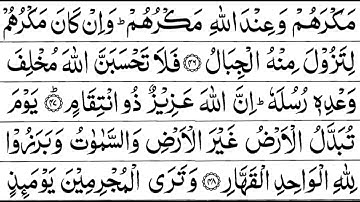 مَكْرَهُمْ وَعِنْدَ اللّٰهِ مَكْرُهُمْ ؕ وَاِنْ كَانَ مَكْرُهُمْ
لِتَزُوْلَ مِنْهُ الْجِبَالُ ﴿۴۶﴾ فَلَا تَحْسَبَنَّ اللّٰهَ مُخْلِفَ
وَعْدِهٖ رُسُلَهٗ ؕ اِنَّ اللّٰهَ عَزِيْزٌ ذُو انْتِقَامٍ ﴿۴۷﴾ؕ يَوْمَ
تُبَدَّلُ الْاَرْضُ غَيْرَ الْاَرْضِ وَالسَّمٰوٰتُ وَبَرَزُوْا
لِلّٰهِ الْوَاحِدِ الْقَهَّارِ ﴿۴۸﴾ وَتَرَى الْمُجْرِمِيْنَ يَوْمَئِذٍ